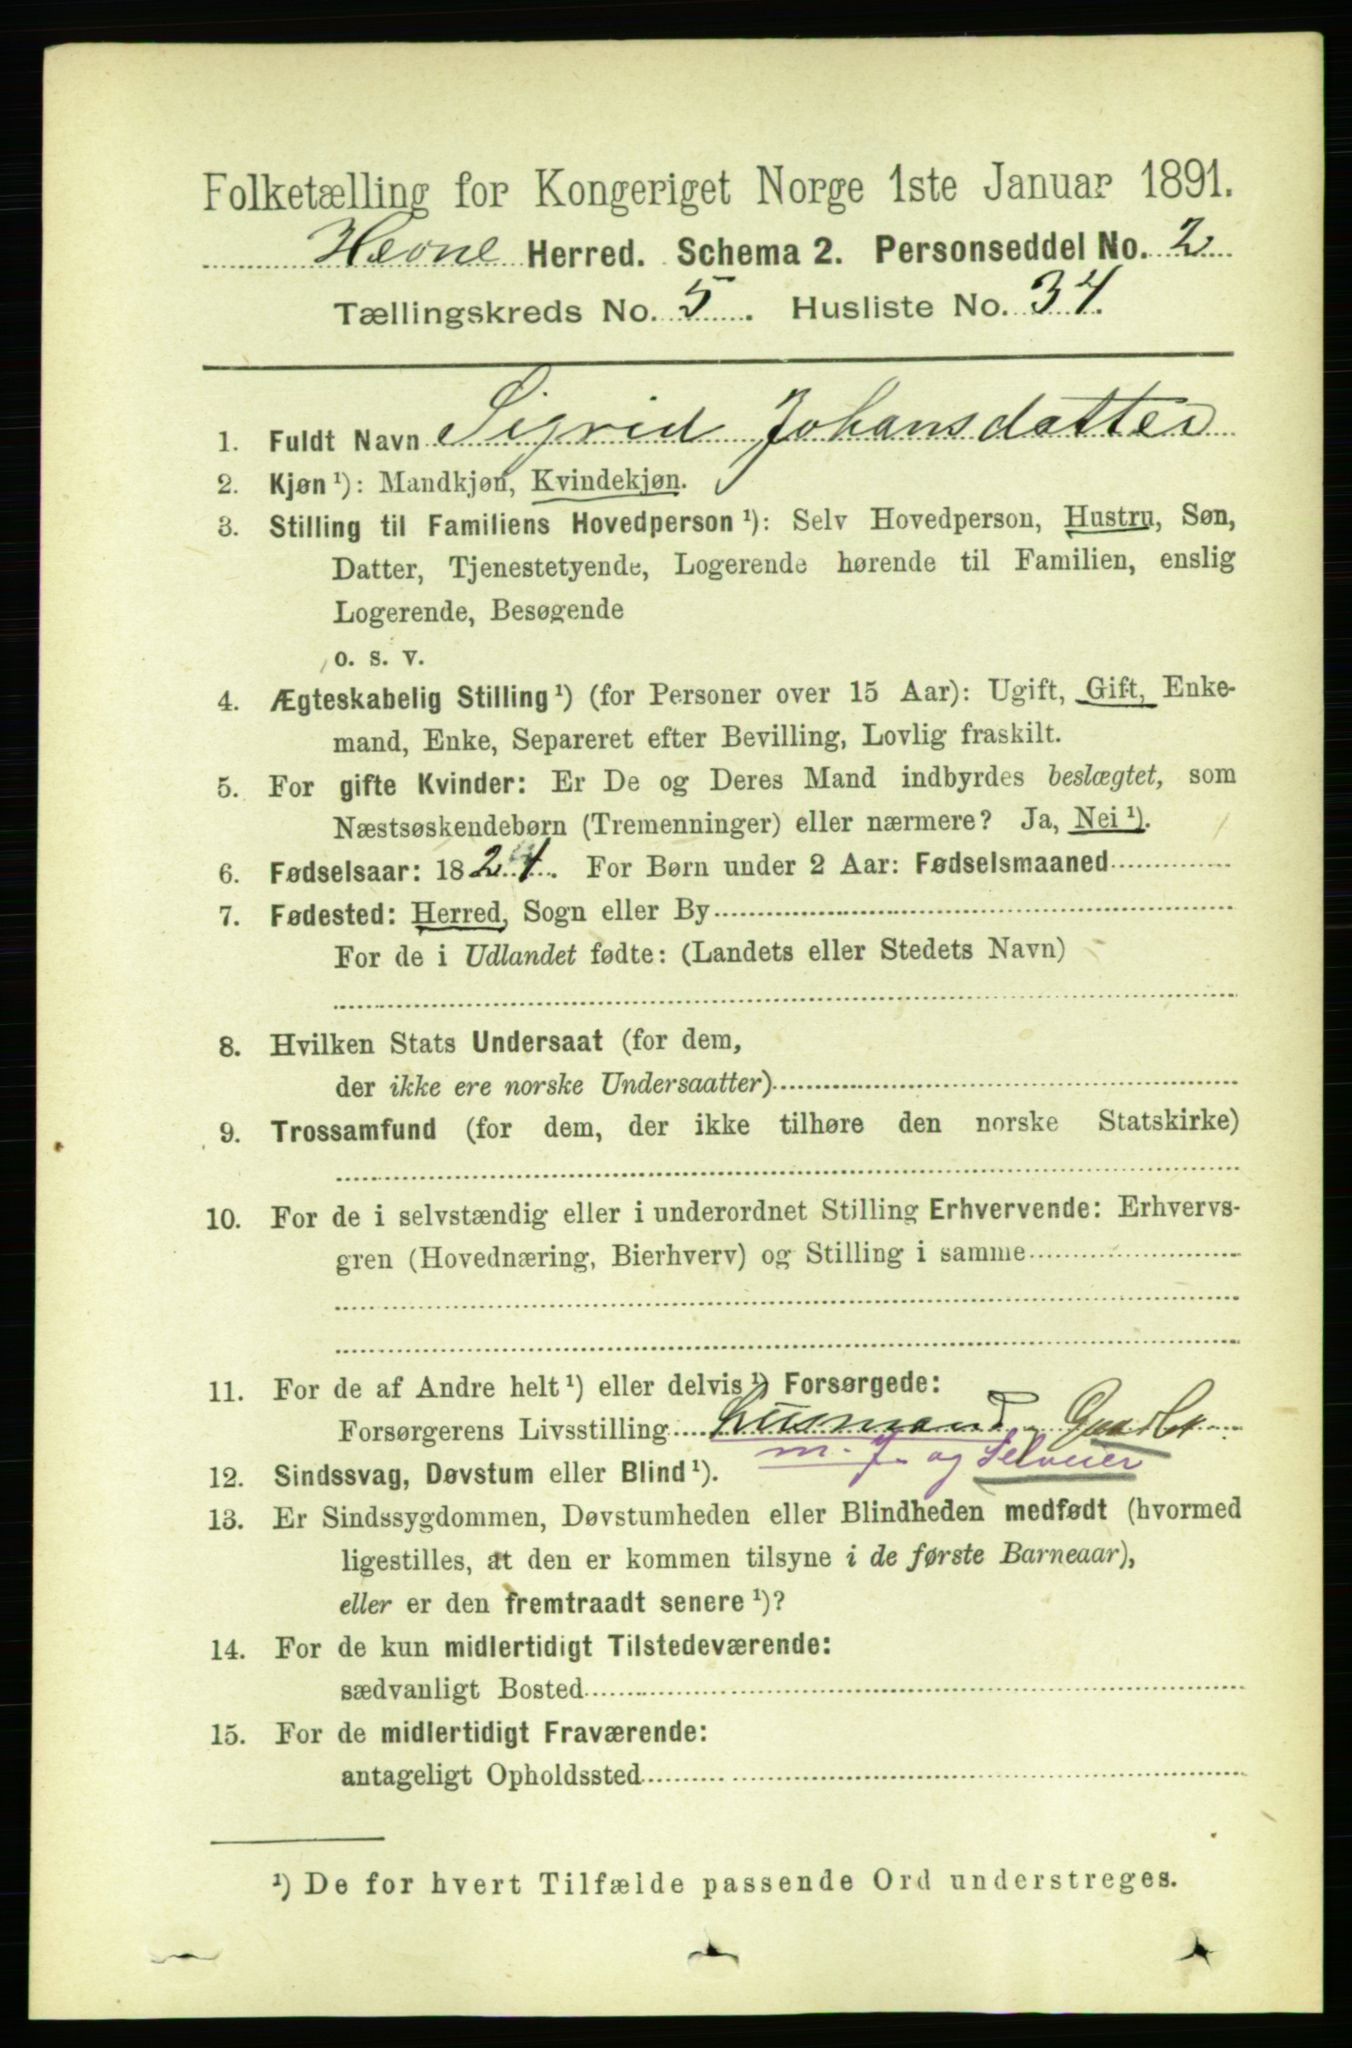 Folketælling for Kongeriget Norge 1ste Januar 1891.
Hevne Herred. Schema 2. Personseddel No. 2
Tællingskreds No. 5. Husliste No. 34.
1. Fuldt Navn Sigrid Johansdatter
2. Kjøn¹): Mandkjøn, Kvindekjøn.
3. Stilling til Familiens Hovedperson¹): Selv Hovedperson, Hustru, Søn,
Datter, Tjenestetyende, Logerende hørende til Familien, enslig
Logerende, Besøgende
o. s. v.
4. Ægteskabelig Stilling¹) (for Personer over 15 Aar): Ugift, Gift, Enke-
mand, Enke, Separeret efter Bevilling, Lovlig fraskilt.
5. For gifte Kvinder: Er De og Deres Mand indbyrdes beslægtet, som
Næstsøskendebørn (Tremenninger) eller nærmere? Ja, Nei¹).
6. Fødselsaar: 1824. For Børn under 2 Aar: Fødselsmaaned
7. Fødested: Herred, Sogn eller By
For de i Udlandet fødte: (Landets eller Stedets Navn)
8. Hvilken Stats Undersaat (for dem,
der ikke ere norske Undersaatter)
9. Trossamfund (for dem, der ikke tilhøre den norske Statskirke)
10. For de i selvstændig eller i underordnet Stilling Erhvervende: Erhvervs-
gren (Hovednæring, Bierhverv) og Stilling i samme
11. For de af Andre helt¹) eller delvis¹) Forsørgede:
Forsørgerens Livsstilling Husmand
m. J. og Selveier
12. Sindssvag, Døvstum eller Blind¹).
13. Er Sindssygdommen, Døvstumheden eller Blindheden medfødt (hvormed
ligestilles, at den er kommen tilsyne i de første Barneaar),
eller er den fremtraadt senere¹)?
14. For de kun midlertidigt Tilstedeværende:
sædvanligt Bosted
15. For de midlertidigt Fraværende:
antageligt Opholdssted
¹) De for hvert Tilfælde passende Ord understreges.